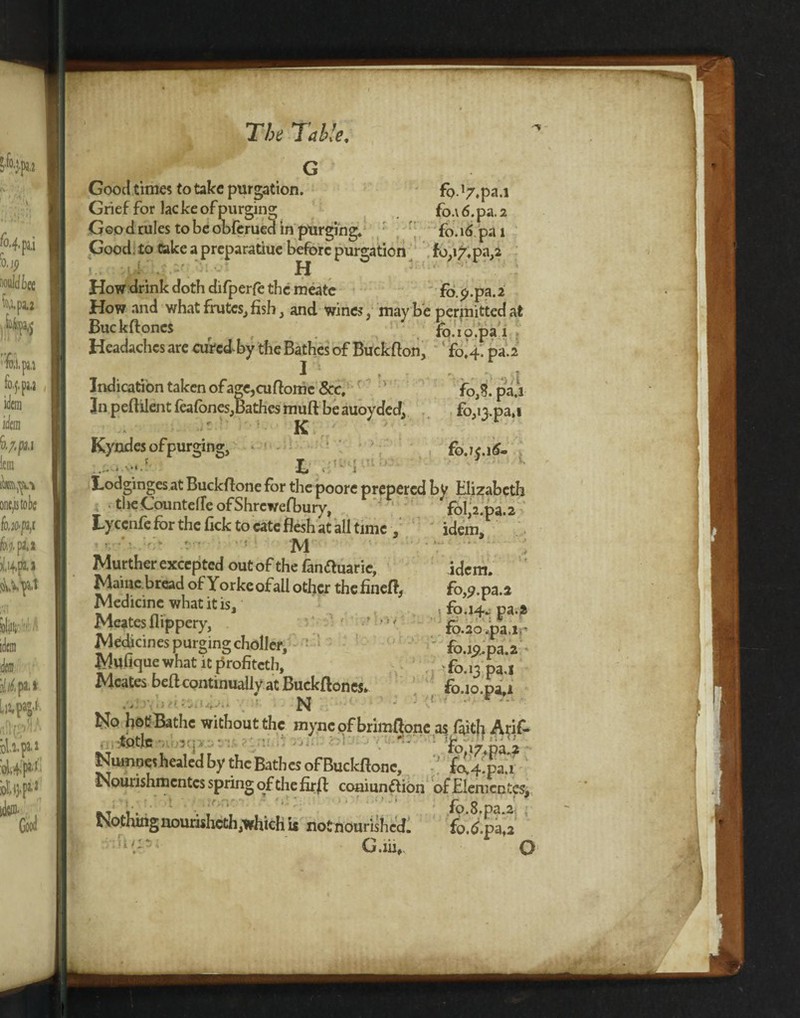 The Table.
G
Good times to take purgation. fo.17.pa.1
Grief for lacke of purging fo.16.pa.2
Good rules to be obſerued in purging. fo.16 pa 1
Good to take a preparatiue before purgation fo,17.pa,2
H
How drink doth diſperſe the meate fo.9.pa.2
How and what frutes, fish, and wines, may be permitted at
Buckſtones fo.10.pa 1
Headaches are cured by the Bathes of Buckſton, fo,4. pa.2
I
Indication taken of age, cuſtome &c, fo,8. pa,1
In peſtilent ſeaſones, Bathes muſt be auoyded, fo,13.pa,1
K
Kyndes of purging, fo.15.16-
L
Lodginges at Buckſtone for the poore prepered by Elizabeth
the Counteſſe of Shrewſbury, fol,2.pa.2
Lycenſe for the ſick to eate flesh at all time, idem,
M
Murther excepted out of the ſanctuarie, idem.
Maine bread of Yorke of all other the fineſt, fo,9.pa.2
Medicine what it is, fo.14. pa.2
Meates ſlippery, fo.20.pa.1
Medicines purging choller, fo.19.pa.2
Muſique what it profiteth, fo.13 pa.1
Meates beſt continually at Buckſtones. fo.10.pa,1
N
No hot Bathe without the myne of brimſtone as ſaith Ariſ-
totle fo,17.pa.2
Numnes healed by the Bathes of Buckſtone, fo,4.pa.1
Nourishmentes spring of the firſt coniunction of Elementes,
fo.8.pa.2
Nothing nourisheth, which is not nourished. fo.6.pa,2
G.iii. O
fo.4.pa.1
idem
idem
idem
Good